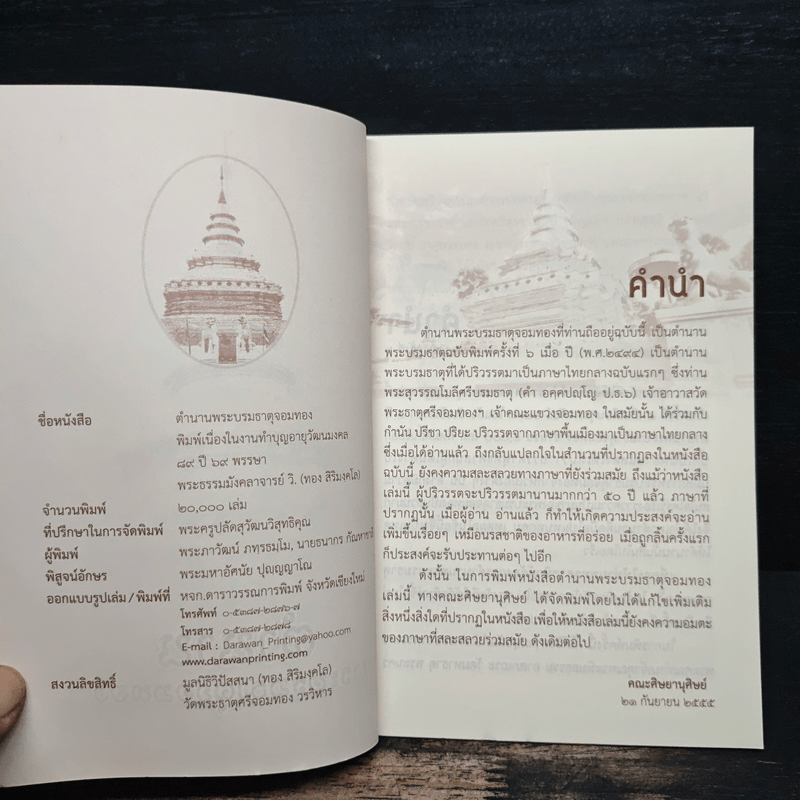 ชื่อหนังสือ ตำนานพระบรมธาตุจอมทอง
พิมพ์เนื่องในงานทำบุญอายุวัฒนมงคล
๘๙ ปี ๖๙ พรรษา
พระธรรมมังคลาจารย์ วิ. (ทอง สิริมงฺคโล)
จำนวนพิมพ์ ๒๐,๐๐๐ เล่ม
ที่ปรึกษาในการจัดพิมพ์ พระครูปลัดสุวัฒนวิสุทธิคุณ
ผู้พิมพ์ พระภาวัฒน์ ภทฺรธมฺโม, นายธนากร
พิสูจน์อักษร พระมหาอัคนัย ปุญฺญาโณ
ออกแบบรูปเล่ม / พิมพ์ที่ หจก.ดาราวรรณการพิมพ์ จังหวัดเชียงใหม่
โทรศัพท์ ๐-๕๓๘๗-๒๘๗๖-๗
โทรสาร ๐-๕๓๘๗-๒๘๗๘
E-mail : Darawan_Printing@yahoo.com
www.darawanprinting.com
สงวนลิขสิทธิ์ มูลนิธิวิปัสสนา (ทอง สิริมงฺคโล)
วัดพระธาตุศรีจอมทอง วรวิหาร
คำนำ
ตำนานพระบรมธาตุจอมทองที่ท่านถืออยู่ฉบับนี้ เป็นตำนาน
พระบรมธาตุฉบับพิมพ์ครั้งที่ ๖ เมื่อ ปี (พ.ศ.๒๔๙๔) เป็นตำนาน
พระบรมธาตุที่ได้ปริวรรตมาเป็นภาษาไทยกลางฉบับแรกๆ ซึ่งท่าน
พระสุวรรณโมลีศรีบรมธาตุ (คำ อคฺคปญฺโญ ป.ธ.๖) เจ้าอาวาสวัด
พระธาตุศรีจอมทองฯ เจ้าคณะแขวงจอมทอง ในสมัยนั้น ได้ร่วมกับ
กำนัน ปรีชา ปริยะ ปริวรรตจากภาษาพื้นเมืองมาเป็นภาษาไทยกลาง
ซึ่งเมื่อได้อ่านแล้ว ถึงกลับแปลกใจในสำนวนที่ปรากฏลงในหนังสือ
ฉบับนี้ ยังคงความสละสลวยทางภาษาที่ยังร่วมสมัย ถึงแม้ว่าหนังสือ
เล่มนี้ ผู้ปริวรรตจะปริวรรตมานานมากกว่า ๕๐ ปี แล้ว ภาษาที่
ปรากฏนั้น เมื่อผู้อ่าน อ่านแล้ว ก็ทำให้เกิดความประสงค์จะอ่าน
เพิ่มขึ้นเรื่อยๆ เหมือนรสชาติของอาหารที่อร่อย เมื่อถูกลิ้นครั้งแรก
ก็ประสงค์จะรับประทานต่อๆ ไปอีก
ดังนั้น ในการพิมพ์หนังสือตำนานพระบรมธาตุจอมทอง
เล่มนี้ ทางคณะศิษยานุศิษย์ ได้จัดพิมพ์โดยไม่ได้แก้ไขเพิ่มเติม
สิ่งหนึ่งสิ่งใดที่ปรากฏในหนังสือ เพื่อให้หนังสือเล่มนี้ยังคงความอมตะ
ของภาษาที่สละสลวยร่วมสมัย ดังเดิมต่อไป
คณะศิษยานุศิษย์
๒๑ กันยายน ๒๕๕๕